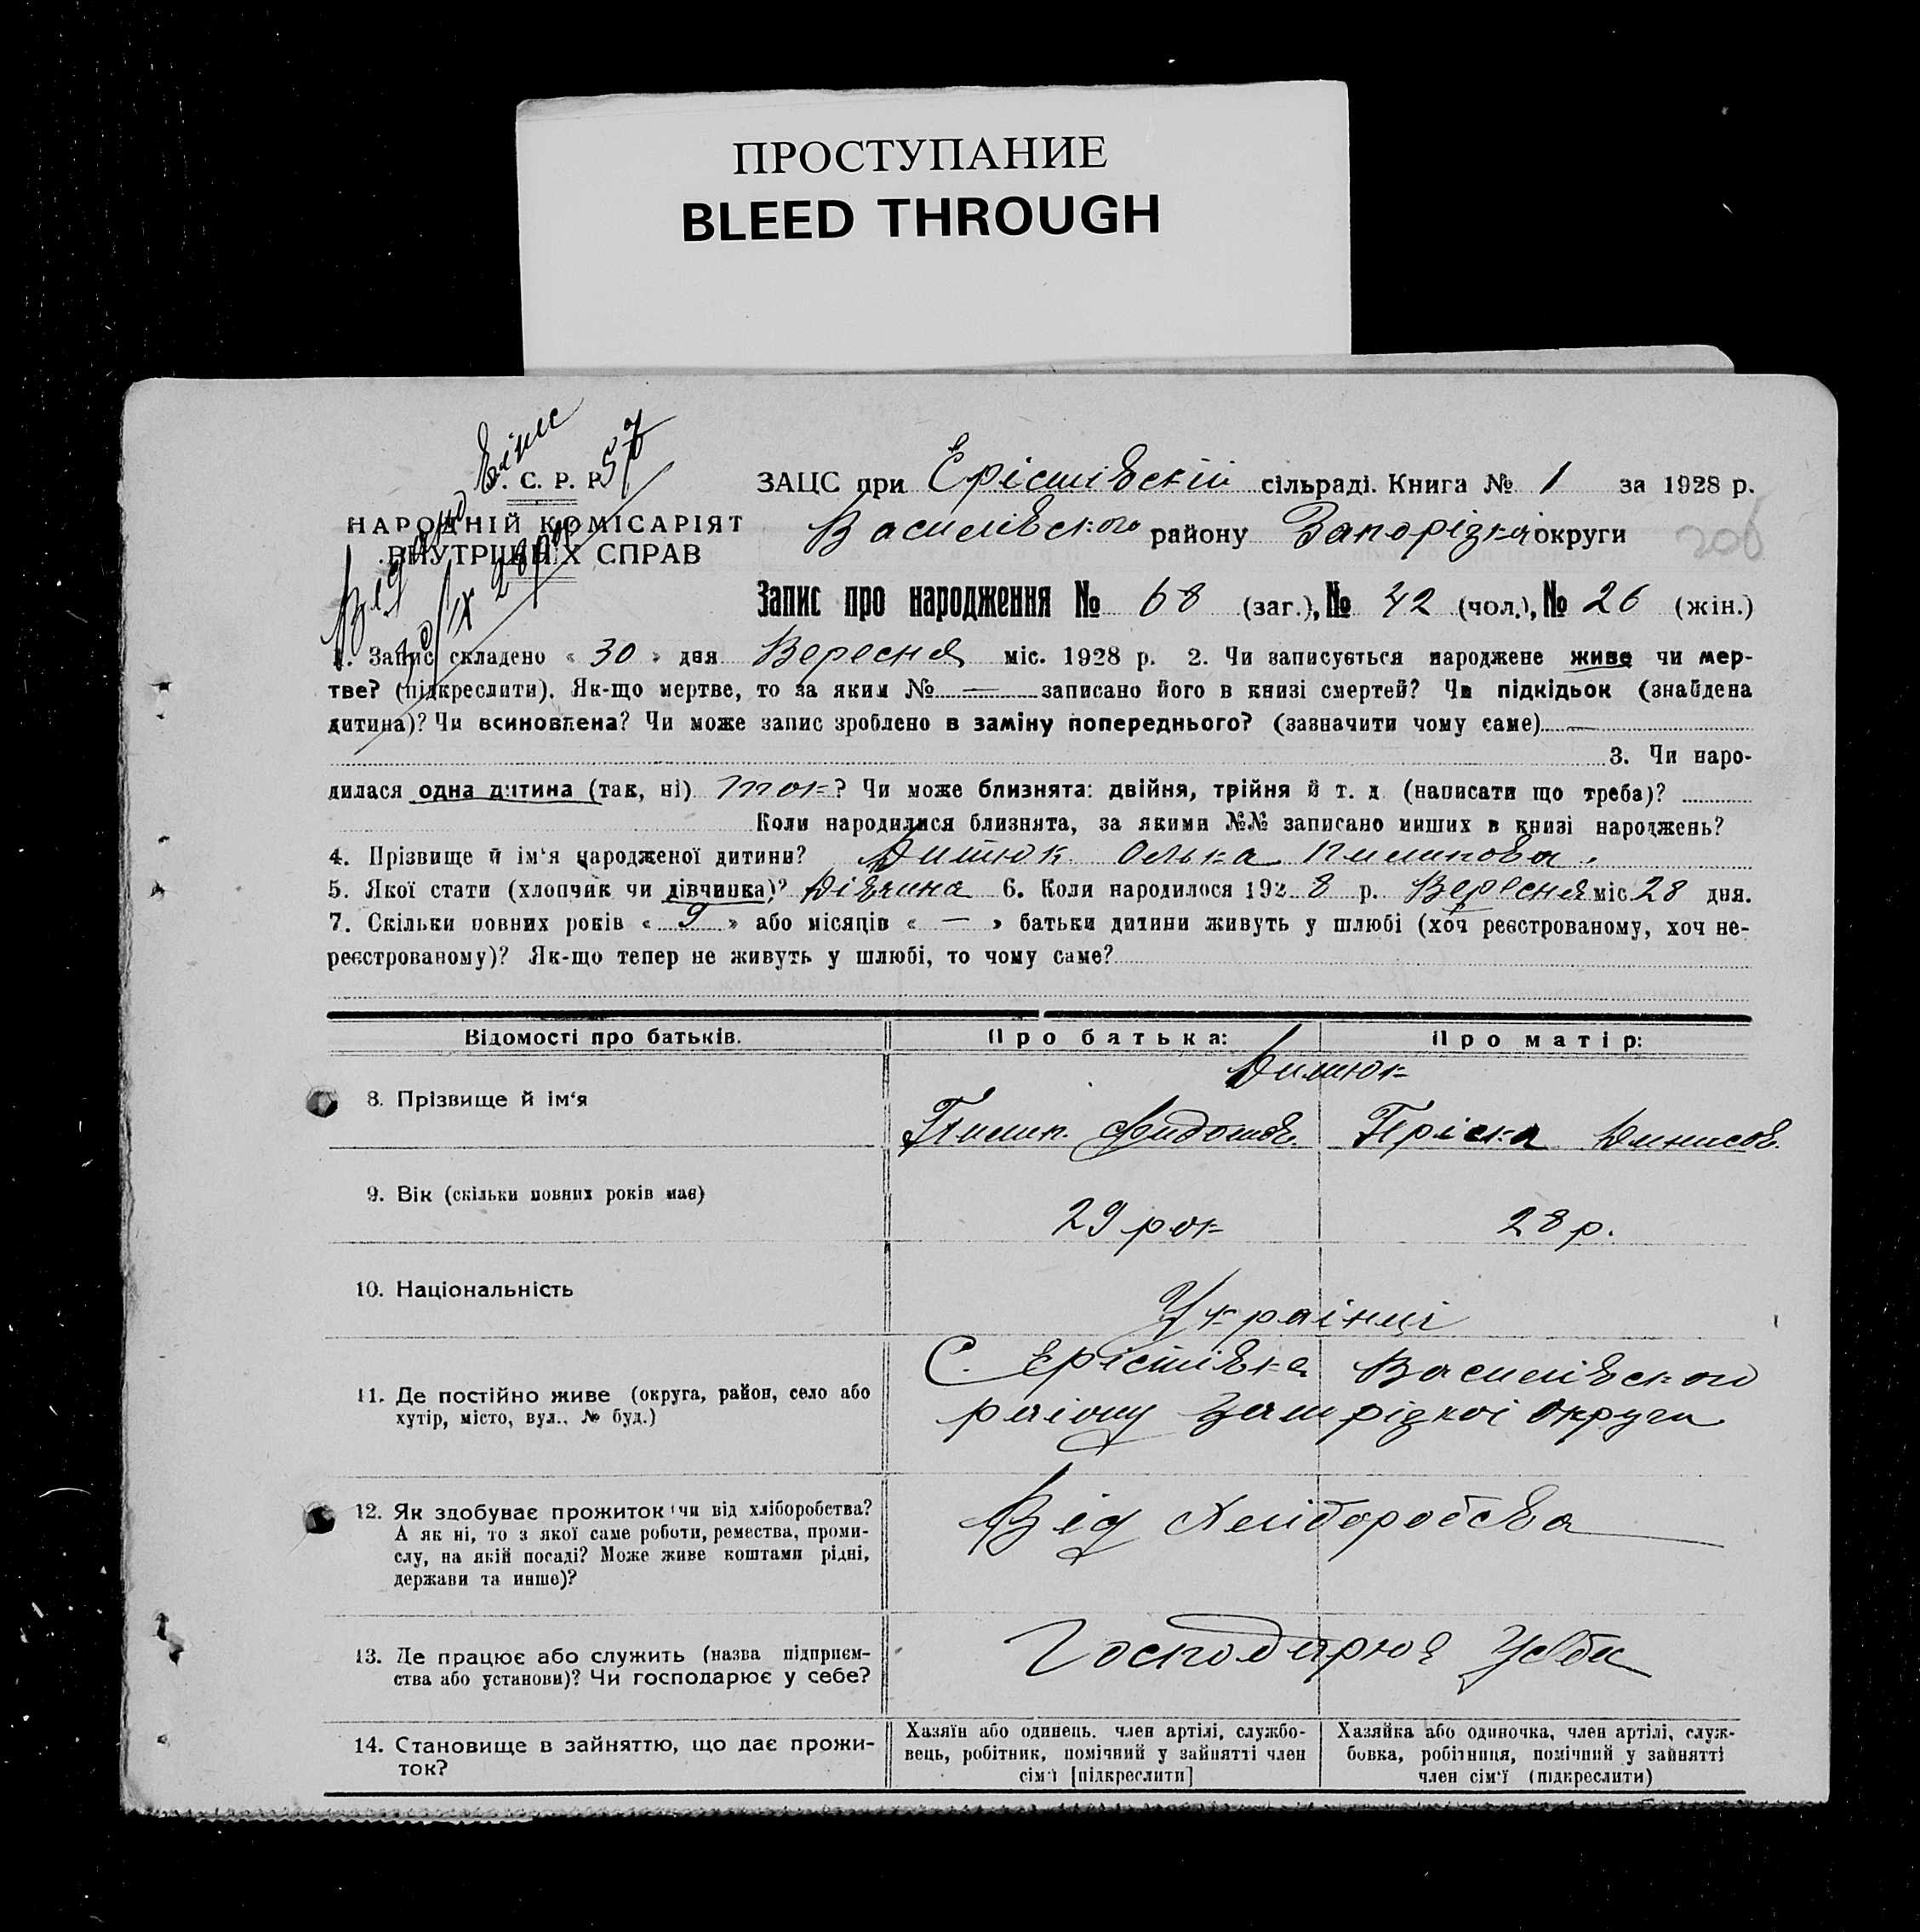 ПРОСТУПАНИЕ
BLEED THROUGH
С. Р. Р.
НАРОДНІЙ КОМІСАРІЯТ
ВНУТРІШНІХ СПРАВ
Видано Випис 57
30/IX 28 р.
ЗАЦС при Ерістівській сільраді. Книга № 1 за 1928 р.
Василівського району Запорізкої округи
206
Запис про народження № 68 (заг.), № 42 (чол.), № 26 (жін.)
1. Запис складено « 30 » дня Вересня міс. 1928 р. 2. Чи записується народжене живе чи мер-
тве? (підкреслити). Як-що мертве, то за яким № — записано його в книзі смертей? Чи підкідьок (знайдена
дитина)? Чи всиновлена? Чи може запис зроблено в заміну попереднього? (зазначити чому саме) —
3. Чи наро-
дилася одна дитина (так, ні) так? Чи може близнята: двійня, трійня й т. д. (написати що треба)?
Коли народилися близнята, за якими №№ записано инших в книзі народжень?
4. Прізвище й ім'я народженої дитини? Олька Пилипова.
5. Якої стати (хлопчяк чи дівчинка)? Дівчина 6. Коли народилося 1928 р. Вересня міс. 28 дня.
7. Скільки повних років « 9 » або місяців « — » батьки дитини живуть у шлюбі (хоч реєстрованому, хоч не-
реєстрованому)? Як-що тепер не живуть у шлюбі, то чому саме?
Відомості про батьків. Про батька: Про матір:
8. Прізвище й ім'я
Пилип. Федотов. Пріська Динисов.
9. Вік (скільки повних років має)
29 рок 28 р.
10. Національність
Українці
11. Де постійно живе (округа, район, село або
хутір, місто, вул., № буд.)
С. Ерістівка Василівського
раіону Запорізкоі Округи
12. Як здобуває прожиток чи від хліборобства?
А як ні, то з якої саме роботи, ремества, проми-
слу, на якій посаді? Може живе коштами рідні,
держави та инше)?
Від Хліборобства
13. Де працює або служить (назва підприєм-
ства або установи)? Чи господарює у себе?
Господарює У себи
14. Становище в зайняттю, що дає прожи-
ток?
Хазяїн або одинець. член артілі, службо-
вець, робітник, помічний у зайнятті член
сім'ї [підкреслити]
Хазяйка або одиночка, член артілі, служ-
бовка, робітниця, помічний у зайнятті
член сім'ї (підкреслити)